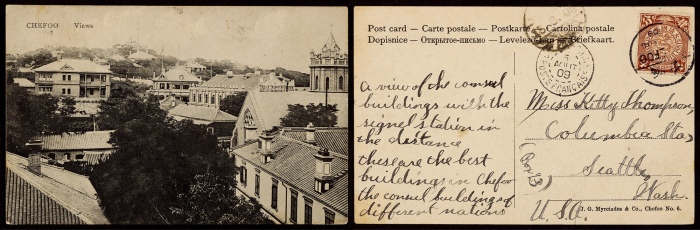 CHEFOO Views
Post card – Carte postale – Postkarte – Cartolina postale
Dopisnice – Открытое-письмо – Levelezo – Briefkaart.
A view of the consul
buildings with the
signel station in
the distance
these are the best
buildings in Chefoo
the consul buildings of
different nations
Miss Kitty Thompson,
Columbia Sta
(Box B)
Seattle,
Wash.
U.S.A.
09
POSTE FRANÇAISE
J. G. Myrtiades & Co., Chefoo No. 6.